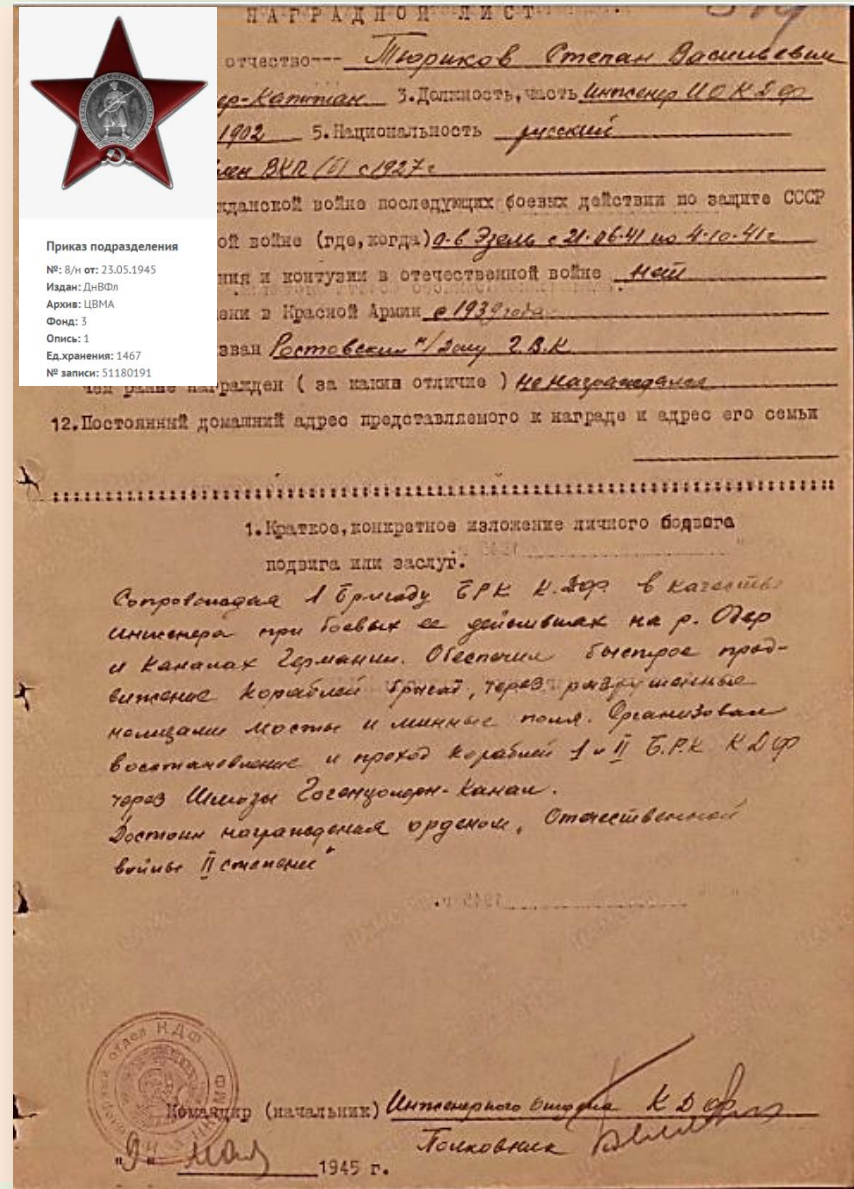 НАГРАДНОЙ ЛИСТ
отчество--- Тюриков Степан Васильевич
ер-Капитан 3.Должность,часть Инженер ИОКДФ
1902 5.Национальность русский
лен ВКП(б) с 1927г
жданской войне последующих боевых действии по защите СССР
ой войне (где,когда) О-в Эзель с 21-06-41 по 4-10-41г
ния и контузии в отечественной войне нет
ени в Красной Армии с 1939 года
зван Ростовским н/Дону Г.В.К
чем ранее награжден ( за какия отличие ) не награждался
12.Постоянный домашний адрес представляемого к награде и адрес его семьи
Приказ подразделения
№: 8/н от: 23.05.1945
Издан: ДнВФл
Архив: ЦВМА
Фонд: 3
Опись: 1
Ед.хранения: 1467
№ записи: 51180191
1.Краткое,конкретное изложение личного боевого
подвига или заслуг.
Сопровождая 1 Бригаду БРК К.Дф. в качестве
инженера при боевых ее действиях на р. Одер
и каналах Германии. Обеспечил быстрое прод-
вижение кораблей бригад, через разрушенные
немцами мосты и минные поля. Организовал
восстановление и проход кораблей 1 и II Б.Р.К КДФ
через Шлюзы Гогенцолерн-Канал.
Достоин награждения орденом „Отечественной
войны II степени"
1945 г.
отдел КДФ
Командир (начальник) Инженерного отдела КДФ
Полковник
"9" мая 1945 г.